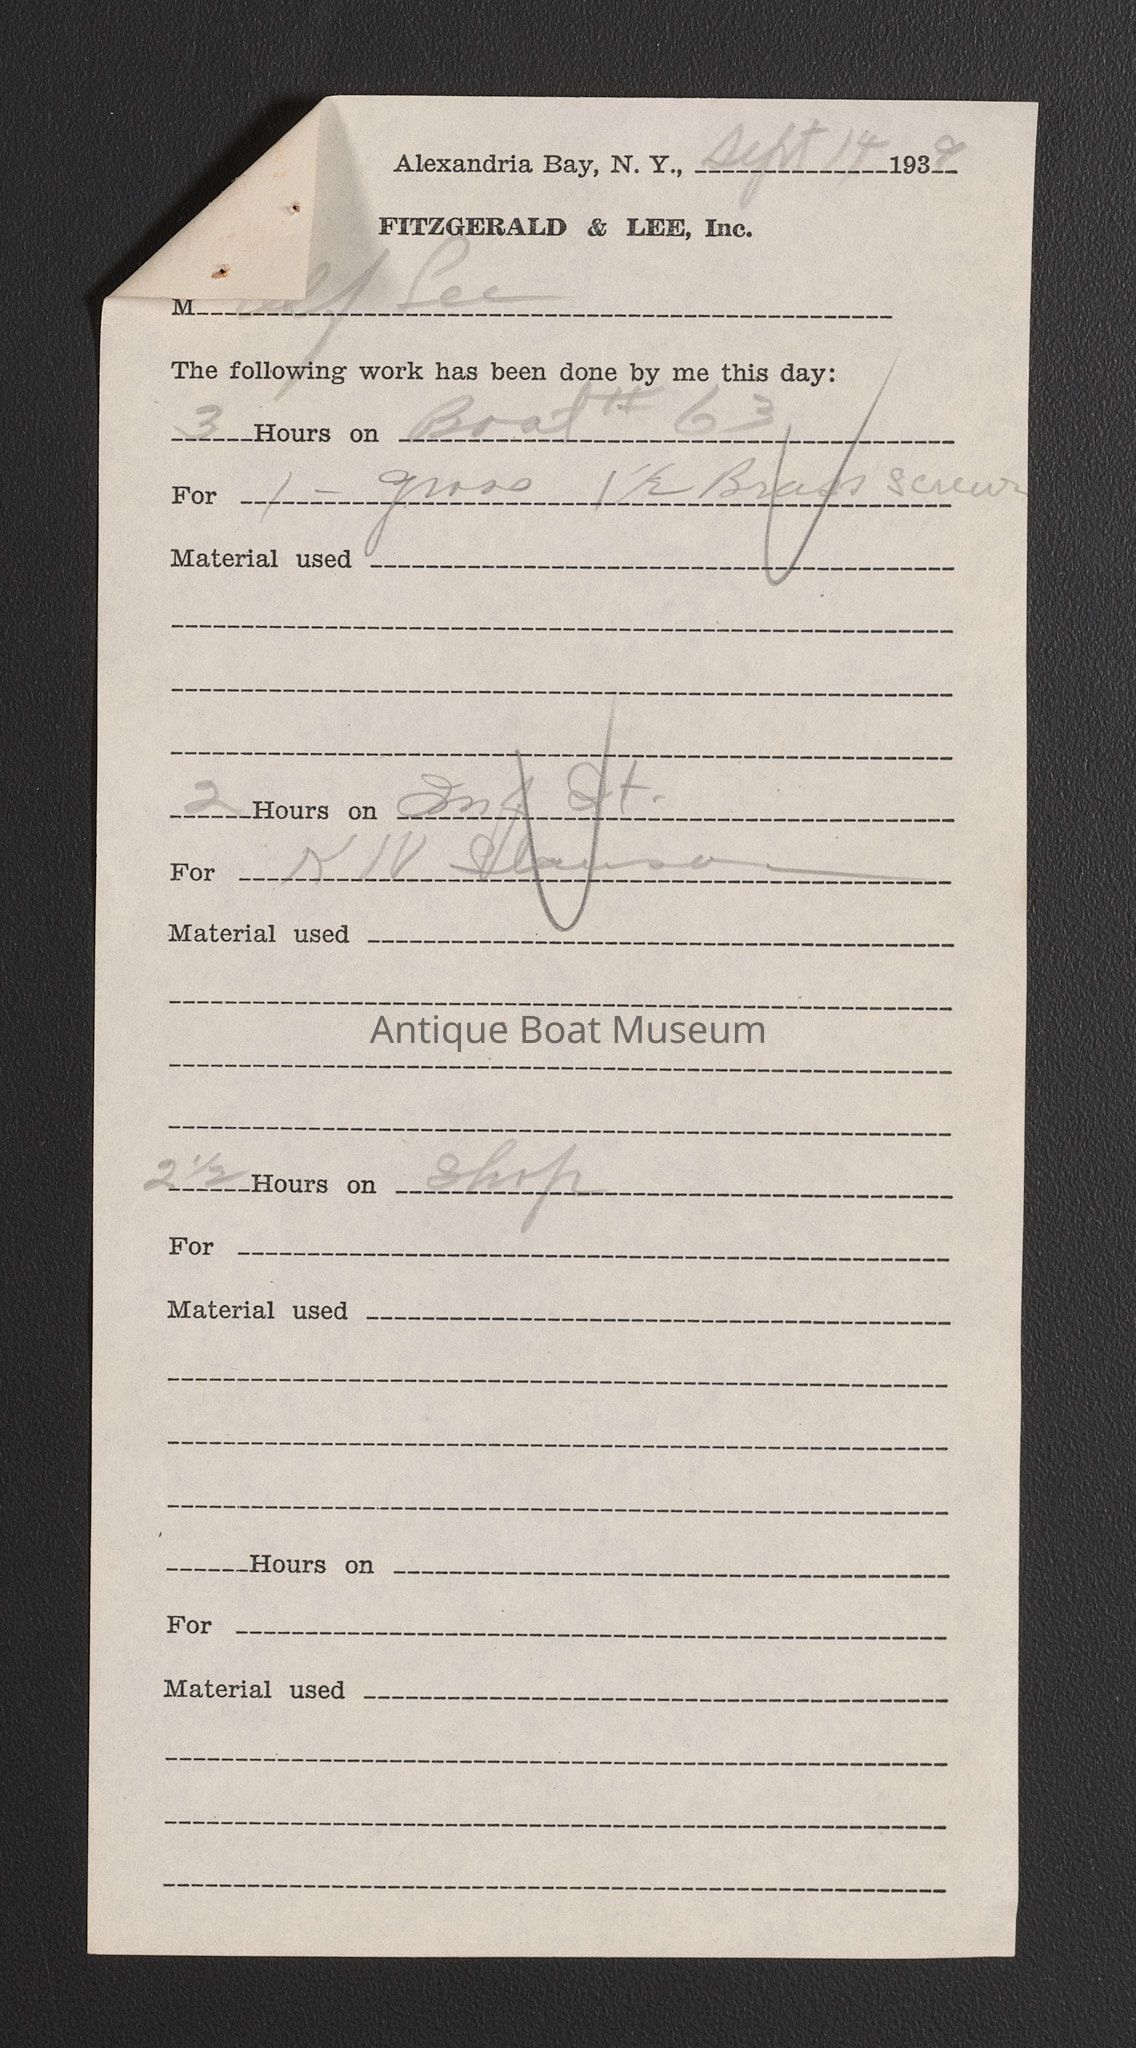 Alexandria Bay, N. Y., Sept 14 193
FITZGERALD & LEE, Inc.
M Lee
The following work has been done by me this day:
3 Hours on Boat # 63
For 1 - gross 1 1/2 Brass Screws
Material used
2 Hours on St.
For
Material used
Antique Boat Museum
2 1/2 Hours on Shop
For
Material used
Hours on
For
Material used